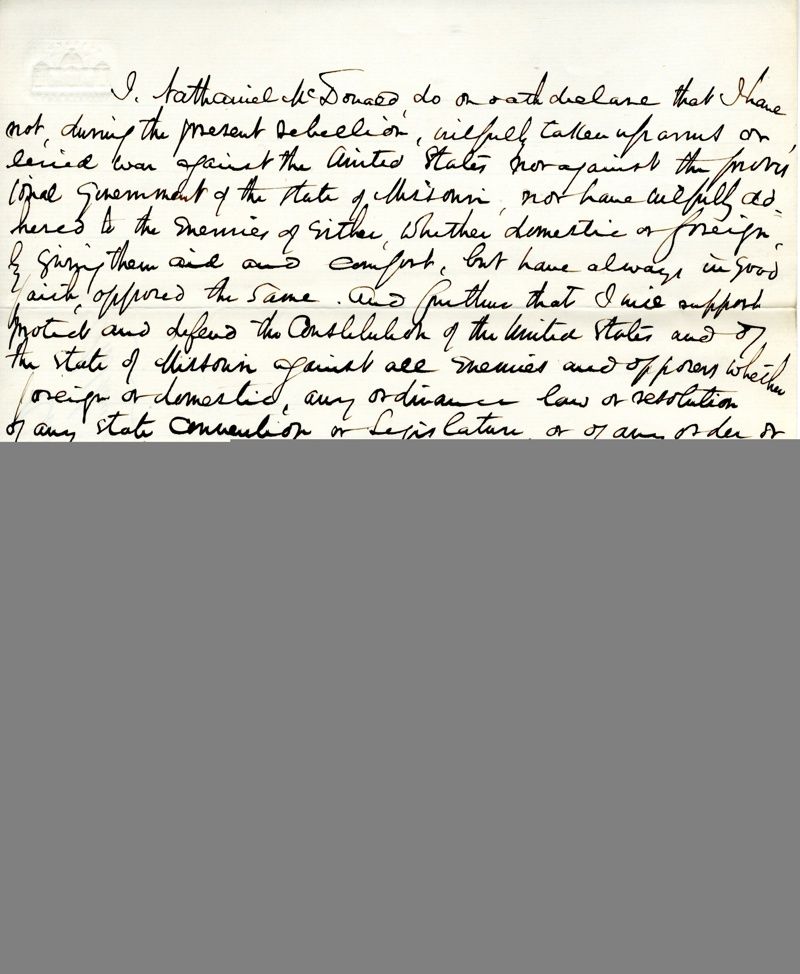 I, Nathaniel McDonald, do on oath declare that I have
not, during the present rebellion, wilfully taken up arms or
levied war against the United States nor against the provis
ional Government of the State of Missouri, nor have wilfully ad
hered to the Enemies of Either, whether domestic or foreign,
by giving them aid and comfort, but have always in good
faith, opposed the same. And further that I will support
protect and defend the Constitution of the United States and of
the State of Missouri against all Enemies and opposers whether
foreign or domestic, any ordinance law or resolution
of any State Convention or Legislature, or of any order or